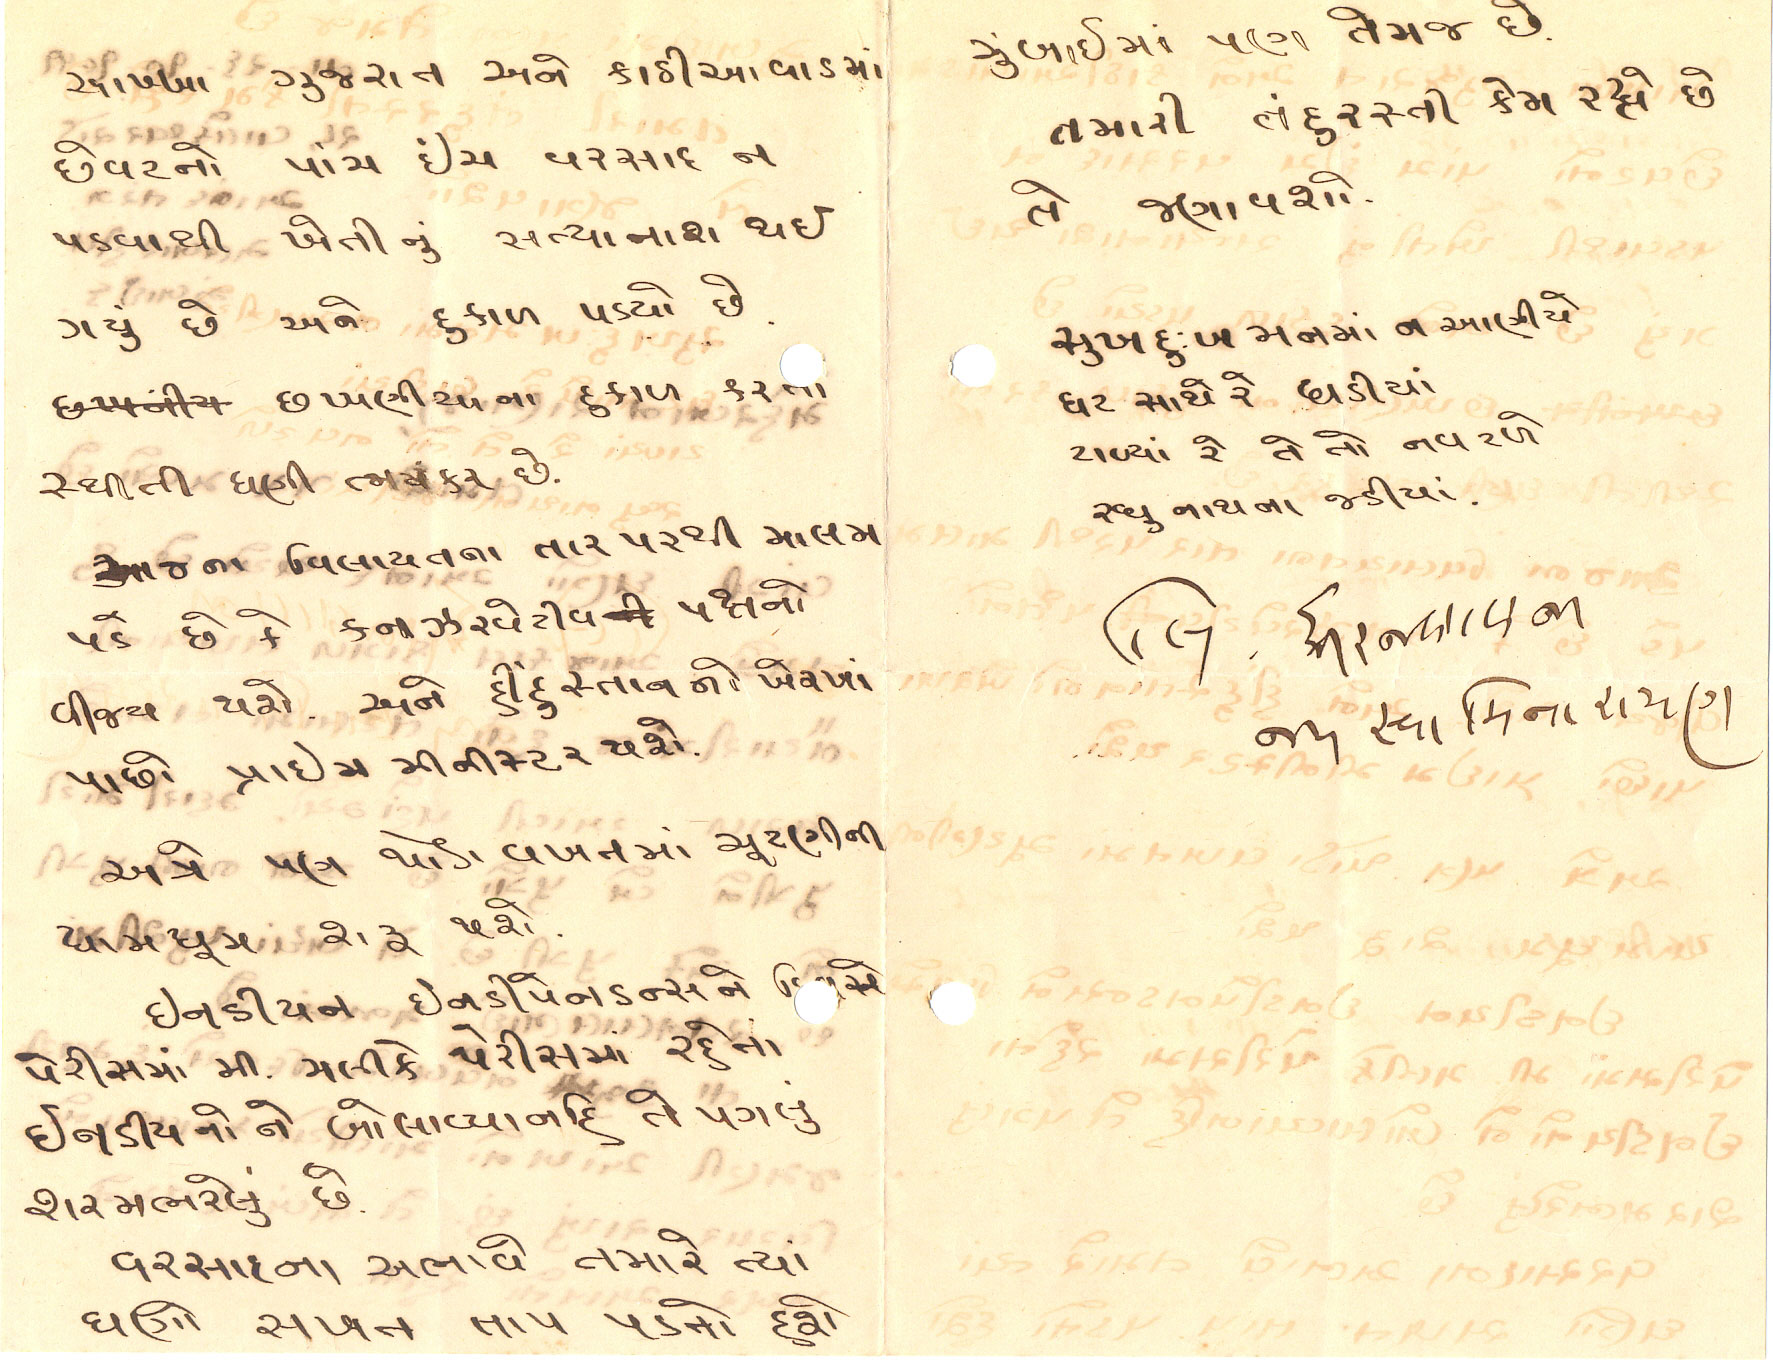 આખા ગુજરાત અને કાઠીઆવાડમાં
છેવટનો પાંચ ઇંચ વરસાદ ન
પડવાથી ખેતીનું સત્યાનાશ થઈ
ગયું છે અને દુકાળ પડ્યો છે.
છપ્પનીય છપ્પણીઆના દુકાળ કરતા
સ્થીતી ઘણી ભયંકર છે.
આજના વિલાયતના તાર પરથી માલમ
પડે છે કે કનઝરવેટીવ પક્ષનો
વીજય થશે. અને હીંદુસ્તાનનો
પાછો પ્રાઇમ મીનીસ્ટર થશે.
અત્રે પણ થોડા વખતમાં ચૂટણીની
ધામધૂમ શરૂ થશે.
ઇનડીયન ઇનડીપેનડન્સને દિવસે
પેરીસમાં મી. મલીકે પેરીસમાં રહેતા
ઈનડીયનોને બોલાવ્યા નહિ તે પગલું
શરમભરેલું છે.
વરસાદના અભાવે તમારે ત્યાં
ઘણો સખત તાપ પડતો હશે
મુંબાઈમાં પણ તેમજ છે.
તમારી તંદુરસ્તી કેમ રહે છે
તે જણાવશો.
સુખ દુઃખ મનમાં ન આણીયે
ઘટ સાથે રે ઘડીયાં
ટાળ્યાં રે તે તો નવ ટળે
રઘુનાથના જડીયાં.
લિ.
જય સ્વામિનારાયણ